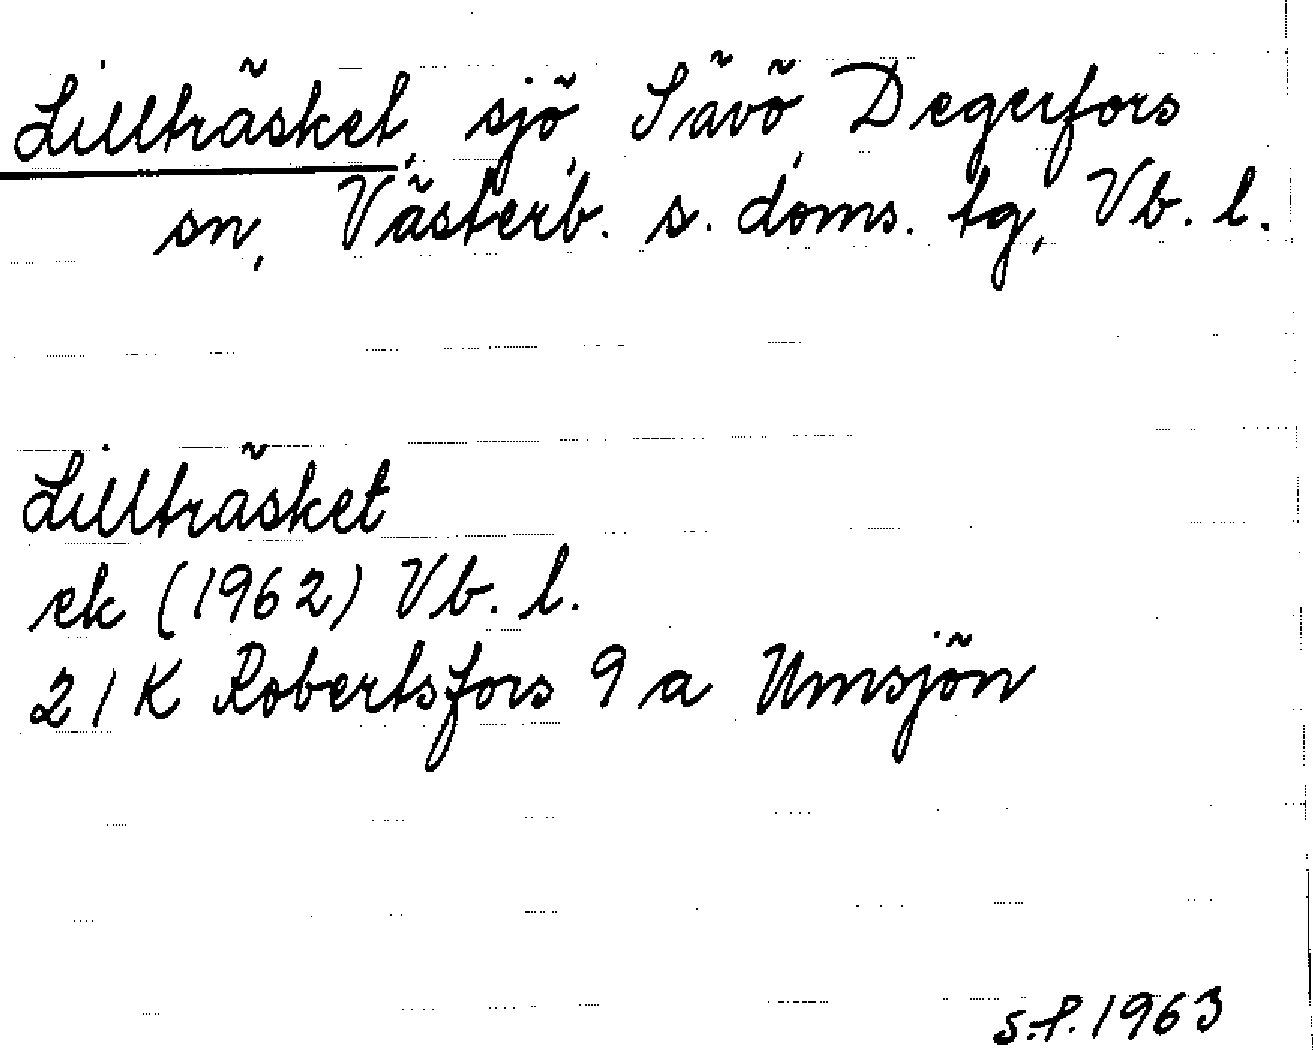 Lillträsket, sjö, Sävö, Degerfors
sn, Västerb. s. doms. tg, Vb. l.
Lillträsket
ek (1962) Vb. l.
21K Robertsfors 9a Umsjön
s.f. 1963